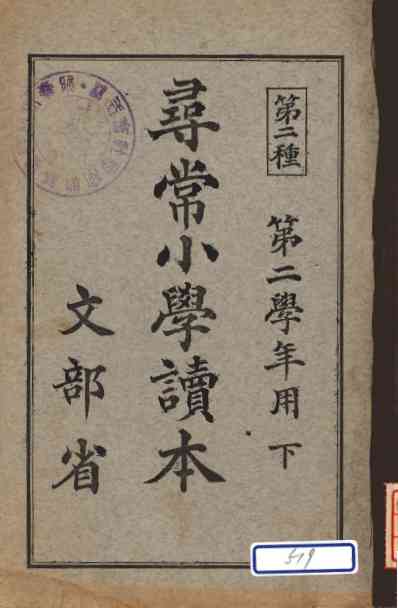 第二種
第二學年用 下
尋常小學讀本
文部省
519